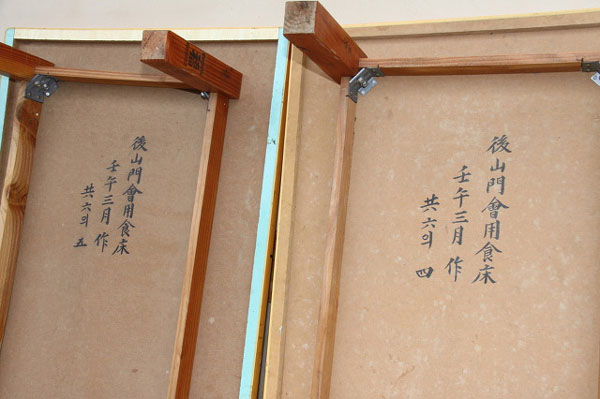 後山門會用食床
壬午三月 作
共六의 五
後山門會用食床
壬午三月 作
共六의 四